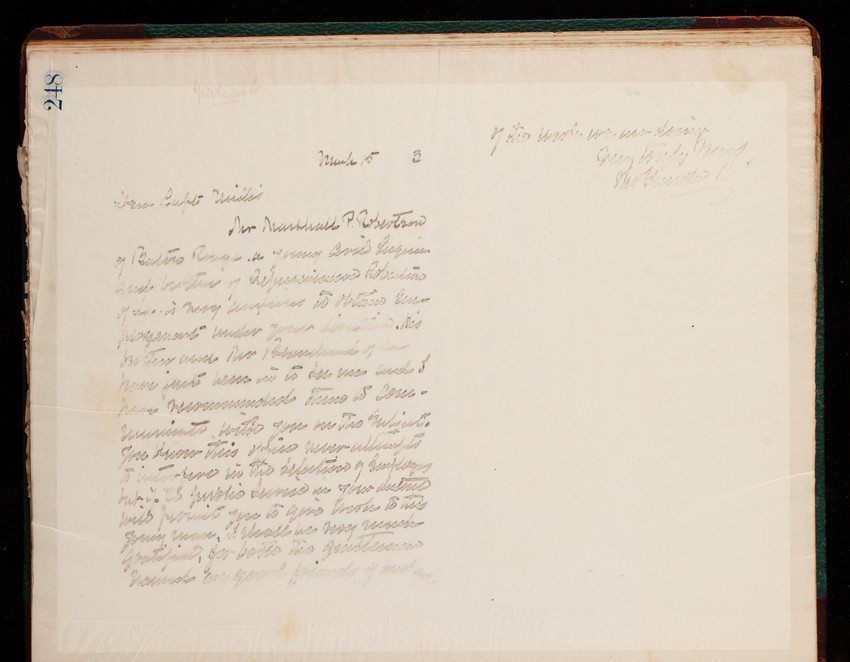 248
March 15 3
Dear Capt Willis
Mr Marshall P. Robertson
of Baton Rouge a young Civil Engineer
and brother of Representative Robertson
of La. is very anxious to obtain em-
ployment under your direction. His
brother and Mr Blanchard of La
have just been in to see me and I
have recommended them to com-
municate with you on the subject.
You know this office never attempts
to interfere in the selection of employes
but if the public service in your district
will permit you to give work to this
young man, I shall be very much
gratified, for both the gentlemen
named are good friends of
of the work we are doing
Very truly Yours